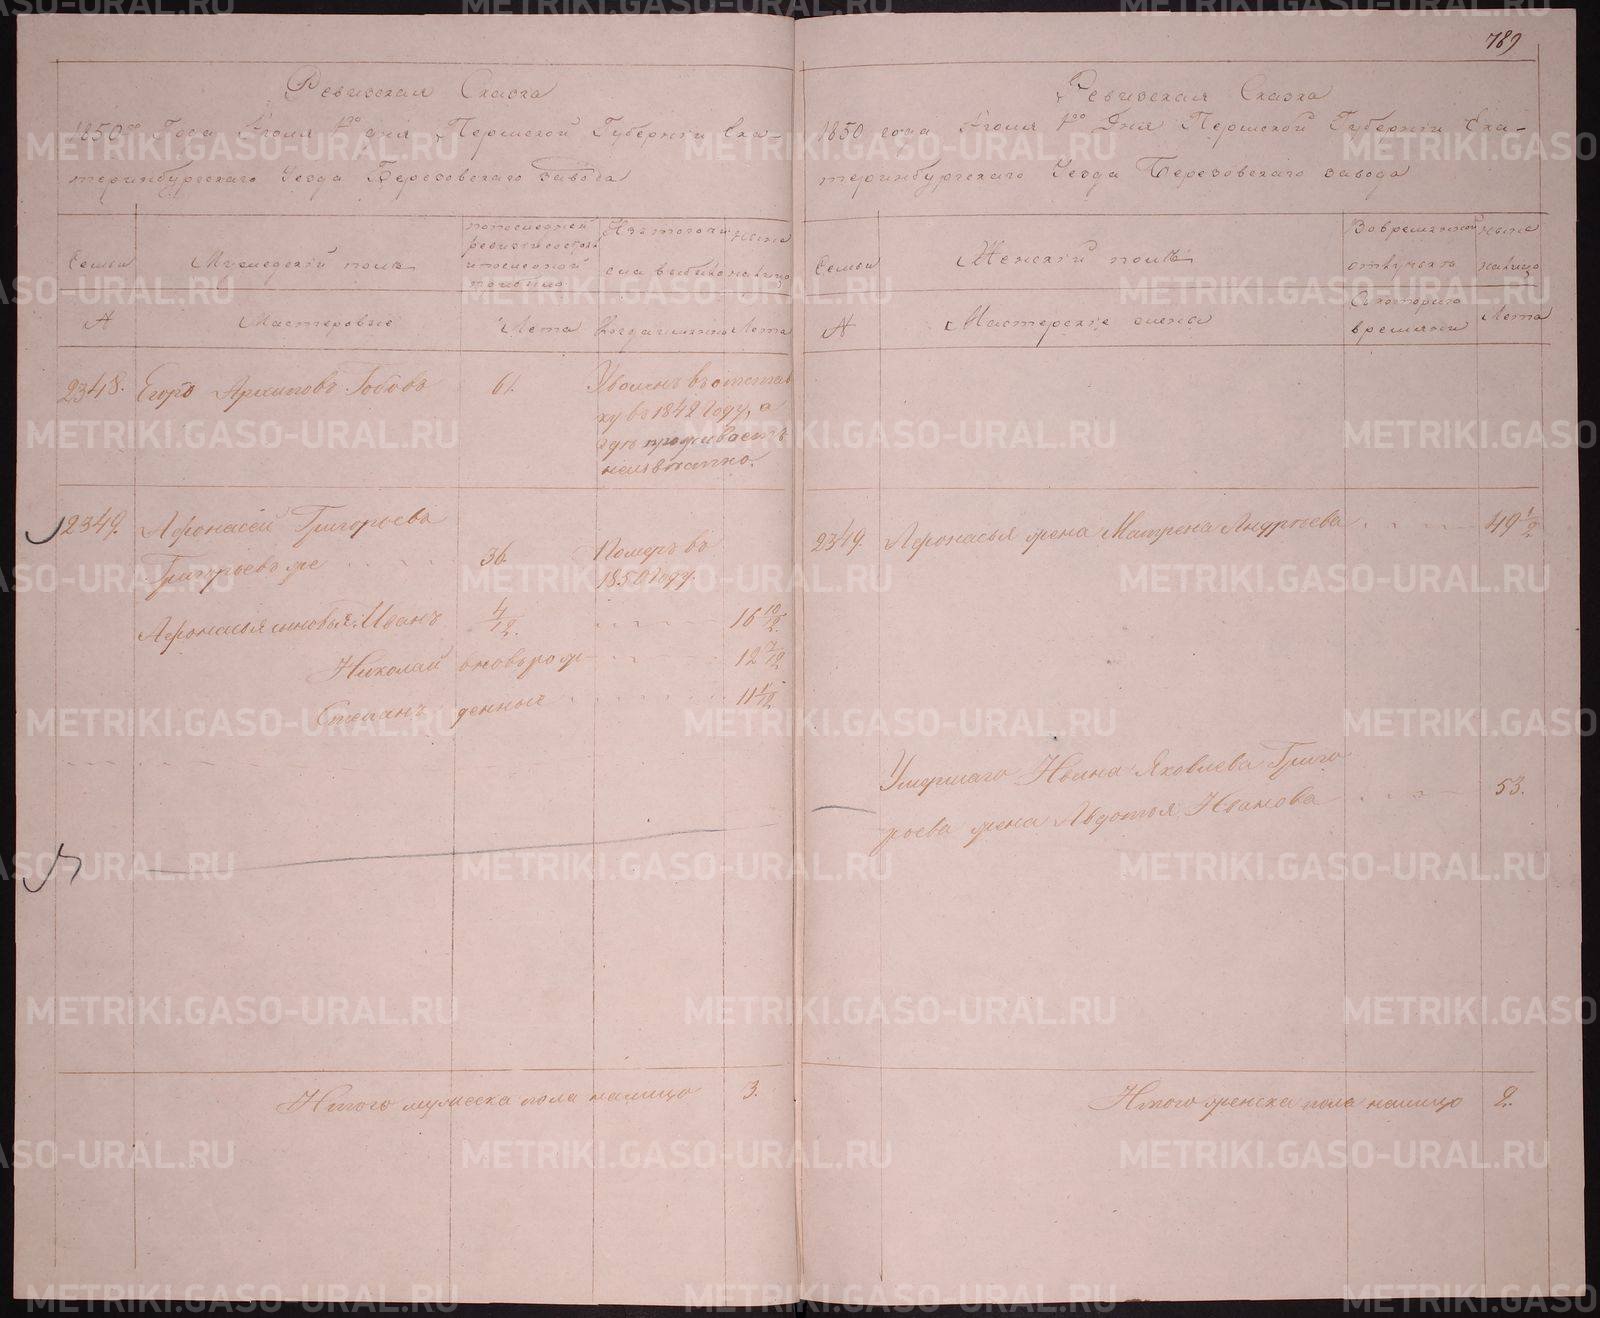 789
Ревизская Сказка
1850го Года Июля 1го дня Пермской Губернiи Ека-
теринбургскаго Уезда Березовскаго завода
Семьи
Мужескiй полъ
Лета
Мастеровые
2348. Егоръ Архиповъ Бобовъ 61. Уволенъ въ отстав
ку въ 1842 году, а
где проживаетъ
неизвестно.
2349. Афонасей Григорьевъ
Григорьевъ же 36. Померъ въ
1850 году.
Афонасья сыновья: Иванъ 4/12. 16 10/12.
Николай вновь рож- 12 7/12
Степанъ денные 11 1/12
Итого мужеска пола налицо 3.
Ревизская Сказка
1850 года Июля 1го Дня Пермской Губернiи Ека-
теринбургскаго Уезда Березовскаго завода
Семьи
Женскiй полъ
Во временной
отлучкѣ
ныне
налицо
Мастерскiе жены
Съ котораго
времяни
Лета
2349. Афонасья жена Матрена Андреева 49 1/2
Умершаго Ивана Яковлева Григо
рьева жена Авдотья Иванова 53.
Итого женска пола налицо 2.
METRIKI.GASO-URAL.RU